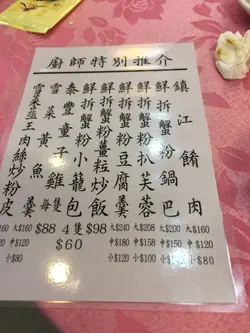 廚師特別推介
鎮江餚肉
大$160
中$120
小$80
鮮拆蟹粉鍋巴
大$200
中$150
小$100
鮮拆蟹粉扒芙蓉
大$208
中$158
鮮拆蟹粉豆腐羹
大$240
中$180
小$120
鮮拆蟹粉薑粒炒飯
$98
鮮拆蟹粉小籠包
4隻
$60
泰豐童子雞
每隻
$88
雪菜黃魚羹
$160
中$120
小$80
雪菜韮王肉絲炒粉皮